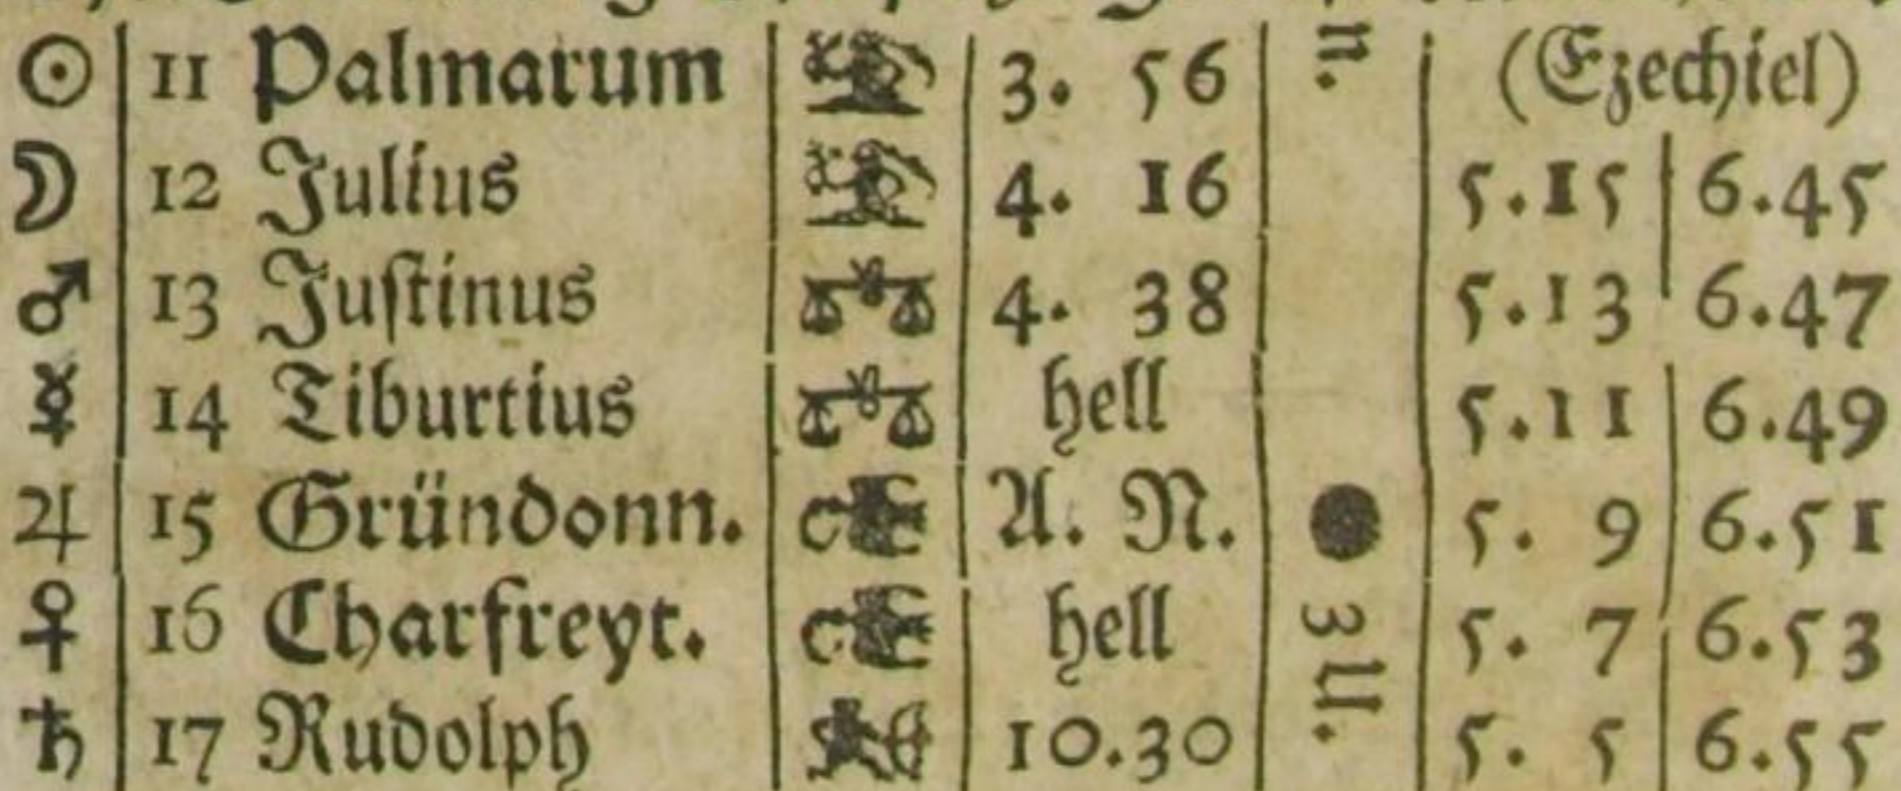 ☉ 11 Palmarum 3. 56 n. (Ezechiel)
☽ 12 Julius 4. 16 5.15 6.45
♂ 13 Juſtinus 4. 38 5.13 6.47
☿ 14 Tiburtius hell 5.11 6.49
♃ 15 Gründonn. A. N. 5. 9 6.51
♀ 16 Charfreyt. hell 3 U. 5. 7 6.53
♄ 17 Rudolph 10.30 5. 5 6.55